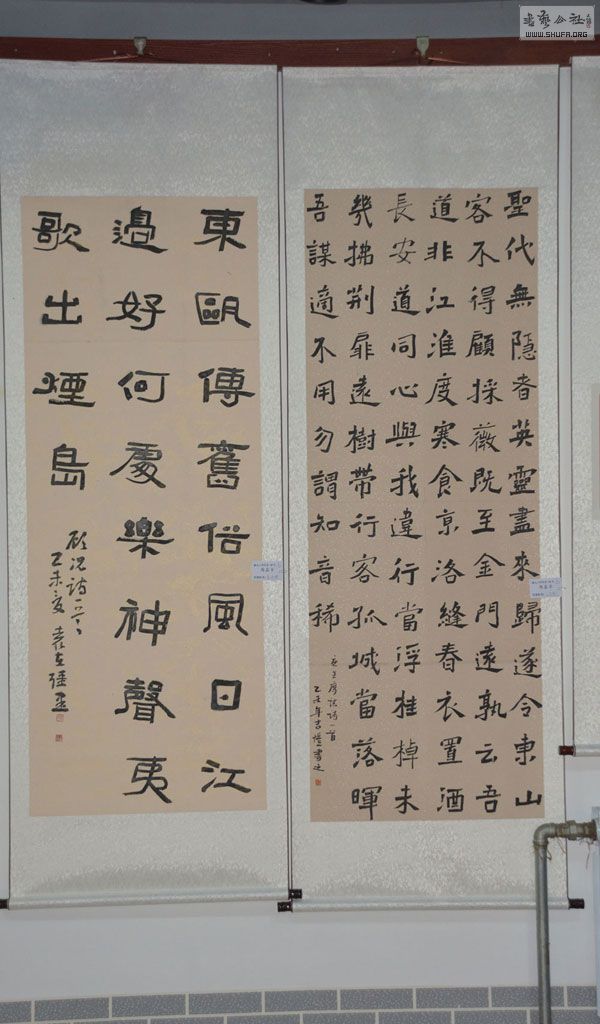 書藝公社
WWW.SHUFA.ORG
聖代無隱者英靈盡來歸遂令東山
客不得顧採薇既至金門遠孰云吾
道非江淮度寒食京洛縫春衣置酒
長安道同心與我違行當浮桂棹未
幾拂荊扉遠樹帶行客孤城當落暉
吾謀適不用勿謂知音稀
王摩詰詩一首
乙未年
東甌傳舊俗風日江
邊好何處樂神聲夷
歌出煙島
顧况詩一首
乙未夏袁